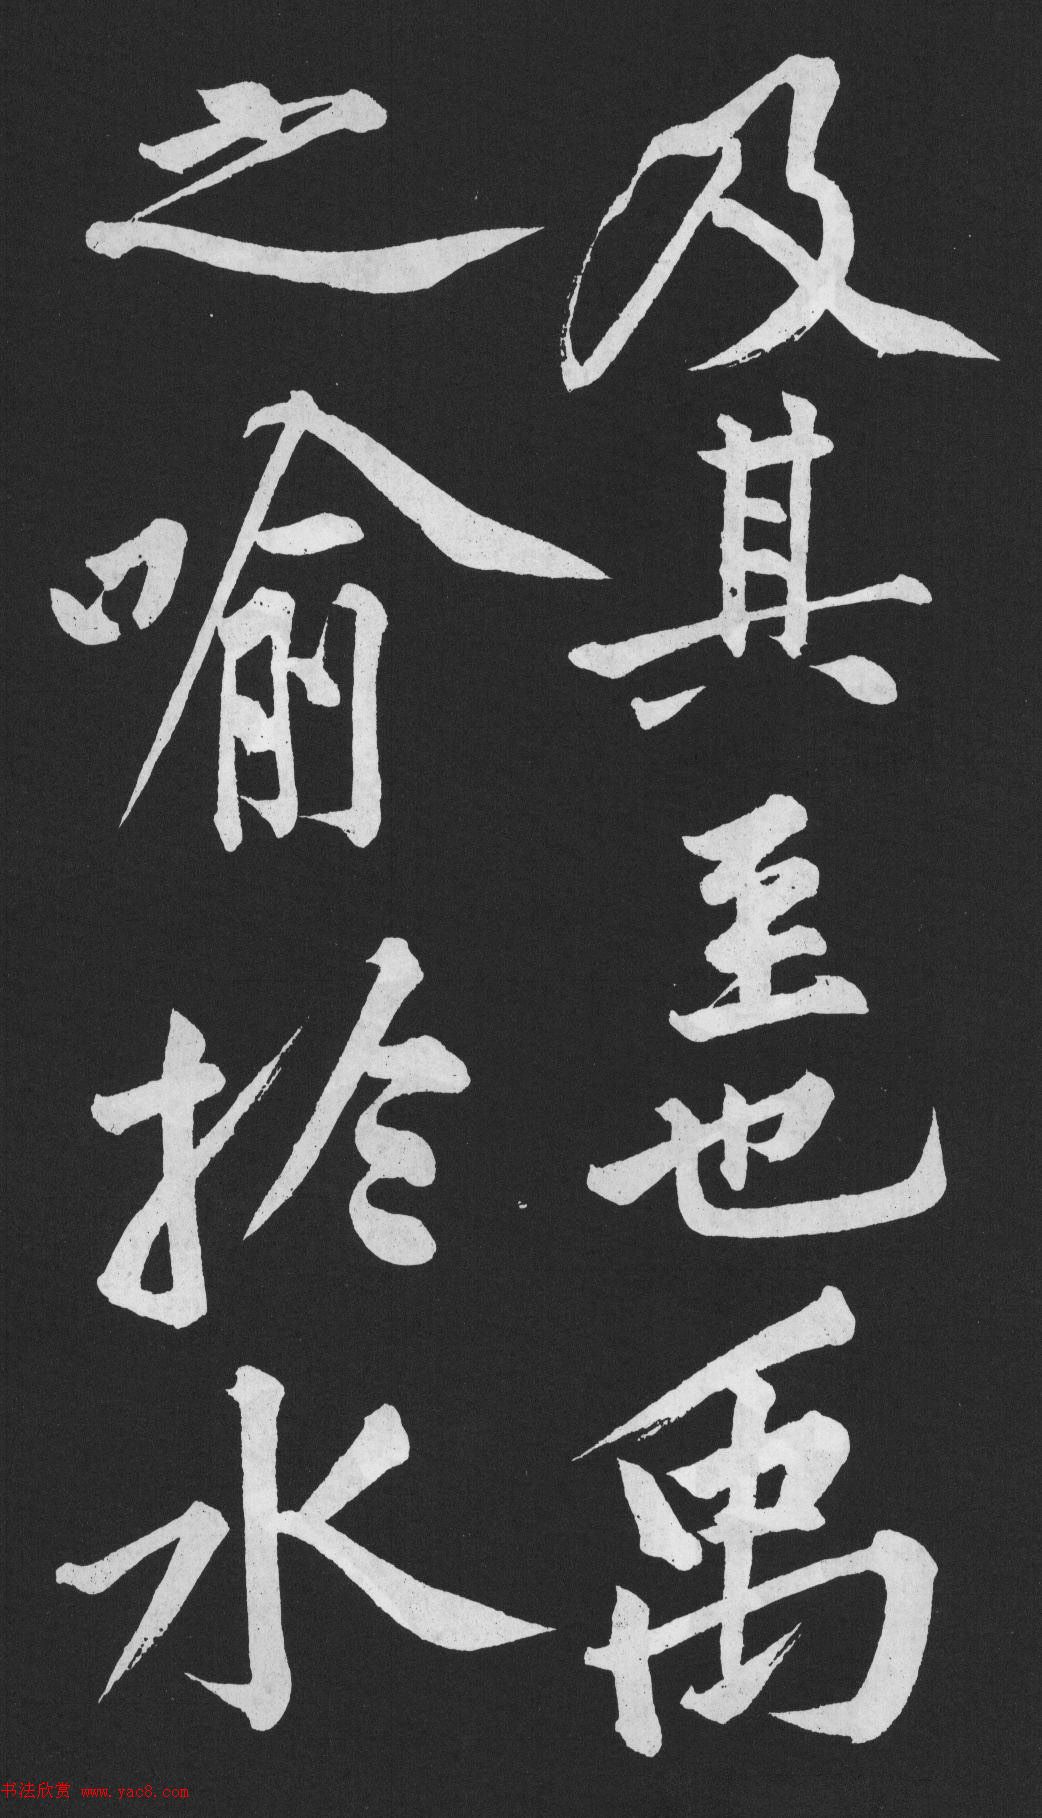 及其至也禹
之喻於水
书法欣赏 www.yac8.com